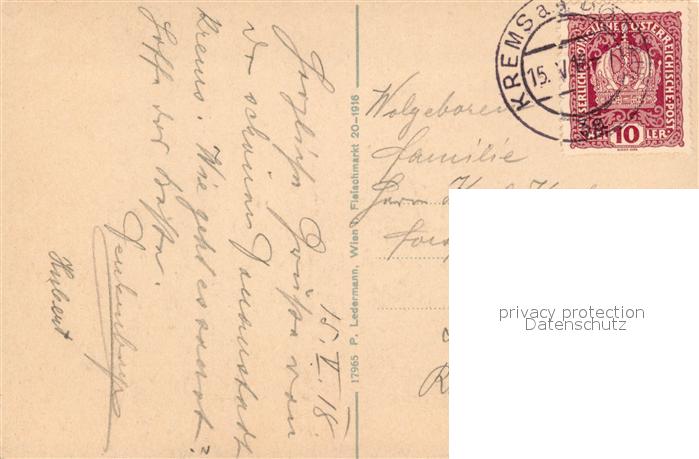 15. V. 18
Herzliche Grüße von
der schönen Donaustadt
Krems. Wie geht es sonst?
Hoffe das Beste.
Hubert
17965 P. Ledermann, Wien I, Fleischmarkt 20-1916
Wolgeboren
Familie
Herrn
KREMS a. d. DONAU
15. V. 18
KAISERLICHE KÖNIGLICHE ÖSTERREICHISCHE POST
10 HELLER
privacy protection
Datenschutz